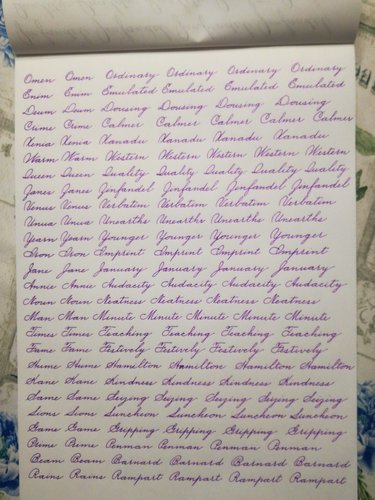 Omen Omen Ordinary Ordinary Ordinary Ordinary
Enim Enim Emulated Emulated Emulated Emulated
Doum Doum Dousing Dousing Dousing Dousing
Crime Crime Calmer Calmer Calmer Calmer
Xenia Xenia Xanadu Xanadu Xanadu Xanadu
Warm Warm Western Western Western Western
Queen Queen Quality Quality Quality Quality
Zinfandel Zinfandel Zinfandel Zinfandel
Venus Venus Verbatim Verbatim Verbatim Verbatim
Unua Unua Unearths Unearths Unearths Unearths
Yearn Yearn Younger Younger Younger Younger
Iron Iron Imprint Imprint Imprint Imprint
Jane Jane January January January January
Annie Annie Audacity Audacity Audacity Audacity
Noun Noun Neatness Neatness Neatness Neatness
Man Man Minute Minute Minute Minute Minute
Times Times Teaching Teaching Teaching Teaching
Fame Fame Festively Festively Festively Festively
Hume Hume Hamilton Hamilton Hamilton Hamilton
Kane Kane Kindness Kindness Kindness Kindness
Same Same Seizing Seizing Seizing Seizing
Lions Lions Luncheon Luncheon Luncheon Luncheon
Game Game Gripping Gripping Gripping Gripping
Penman Penman Penman Penman
Beam Beam Barnard Barnard Barnard Barnard
Rains Rains Rampart Rampart Rampart Rampart